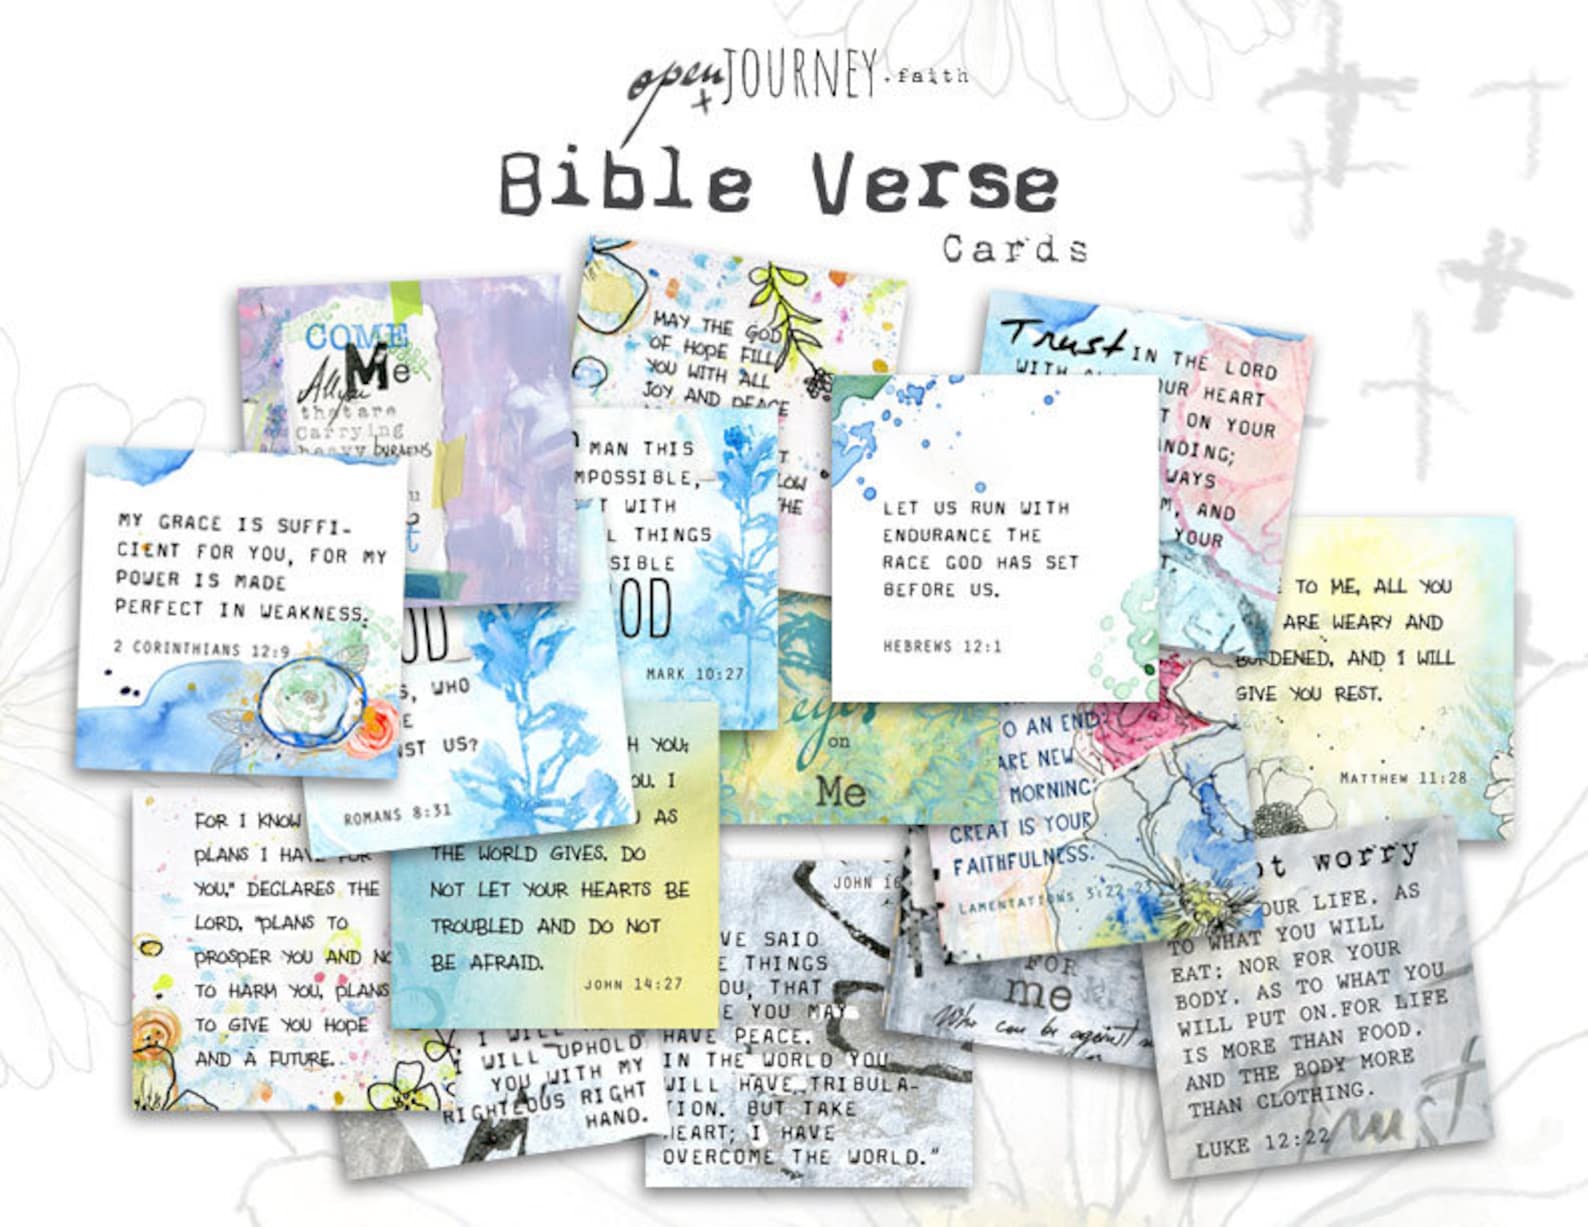 open JOURNEY.faith
Bible Verse
Cards
COME
Me
All you
that are
Carrying
heavy BURDENS
MAY THE GOD
OF HOPE FILL
YOU WITH ALL
JOY AND PEACE
Trust IN THE LORD
WITH
UR HEART
ON YOUR
WAYS
AND
YOUR
MY GRACE IS SUFFI-
CIENT FOR YOU, FOR MY
POWER IS MADE
PERFECT IN WEAKNESS.
2 CORINTHIANS 12:9
MAN THIS
MPOSSIBLE,
T WITH
L THINGS
SIBLE
OD
MARK 10:27
LET US RUN WITH
ENDURANCE THE
RACE GOD HAS SET
BEFORE US.
HEBREWS 12:1
TO ME, ALL YOU
ARE WEARY AND
BURDENED, AND I WILL
GIVE YOU REST.
MATTHEW 11:28
OD
S, WHO
E
NST US?
ROMANS 8:31
eyes
on
Me
O AN END:
ARE NEW
MORNING;
GREAT IS YOUR
FAITHFULNESS.
LAMENTATIONS 3:22-23
FOR I KNOW
PLANS I HAVE FOR
YOU," DECLARES THE
LORD, "PLANS TO
PROSPER YOU AND NO
TO HARM YOU, PLANS
TO GIVE YOU HOPE
AND A FUTURE.
H YOU;
OU. I
AS
THE WORLD GIVES. DO
NOT LET YOUR HEARTS BE
TROUBLED AND DO NOT
BE AFRAID.
JOHN 14:27
I WILL
WILL UPHOLD
YOU WITH MY
RIGHTEOUS RIGHT
HAND.
JOHN 16
VE SAID
E THINGS
OU, THAT
E YOU MAY
HAVE PEACE.
IN THE WORLD YOU
WILL HAVE TRIBULA-
TION. BUT TAKE
HEART; I HAVE
OVERCOME THE WORLD."
FOR
me
Who can be against
ot worry
OUR LIFE, AS
TO WHAT YOU WILL
EAT; NOR FOR YOUR
BODY, AS TO WHAT YOU
WILL PUT ON.FOR LIFE
IS MORE THAN FOOD,
AND THE BODY MORE
THAN CLOTHING.
LUKE 12:22
trust